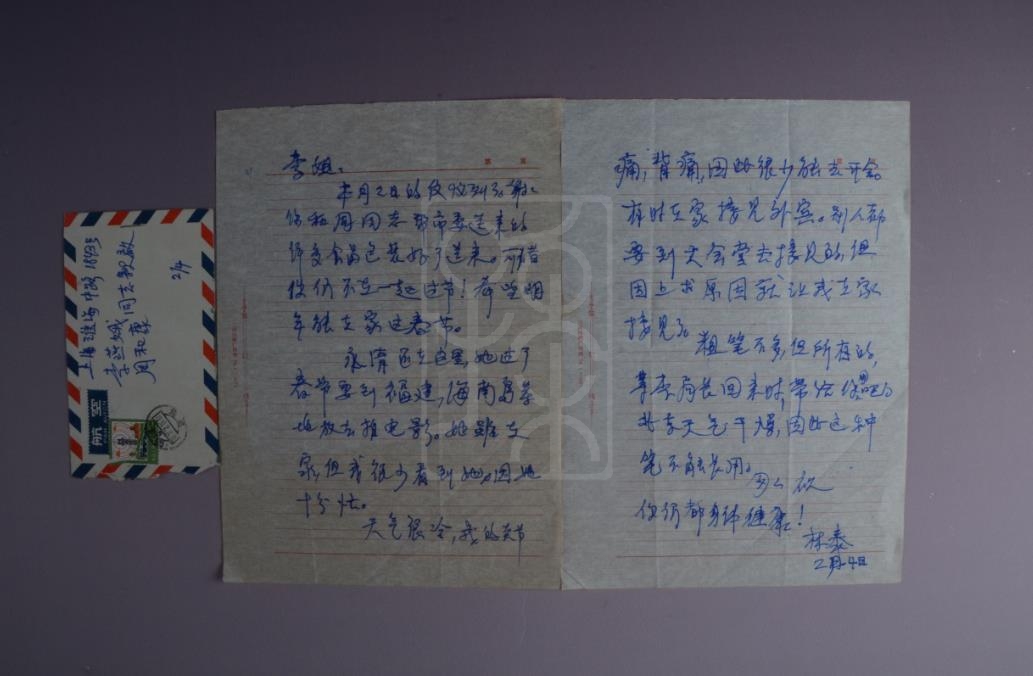 上海淮海中路1843号
李燕娥同志 亲启
周和康
2/4
航空
第 页
李姐：
本月2日的信收到了。谢谢
你和周同志帮市委送来的
许多食品包装好了送来。可惜
你们不在一起过节！希望明
年能在家过春节。
永清还在这里，她过了
春节要到福建，海南岛等
地放去拍电影。她虽在
家，但我很少看到她。因她
十分忙。
天气很冷，我的关节
痛，背痛，因此很少能去开会。
有时在家接见外宾。别人都
要到大会堂去接见的，但
因上求原因就让我在家
接见了。
粗笔不多，但所有的，
等李局长回来时，带给你吧。
北京天气干燥，因此这种
笔不能长用。
祝
你们都身体健康！
林泰
2月4日